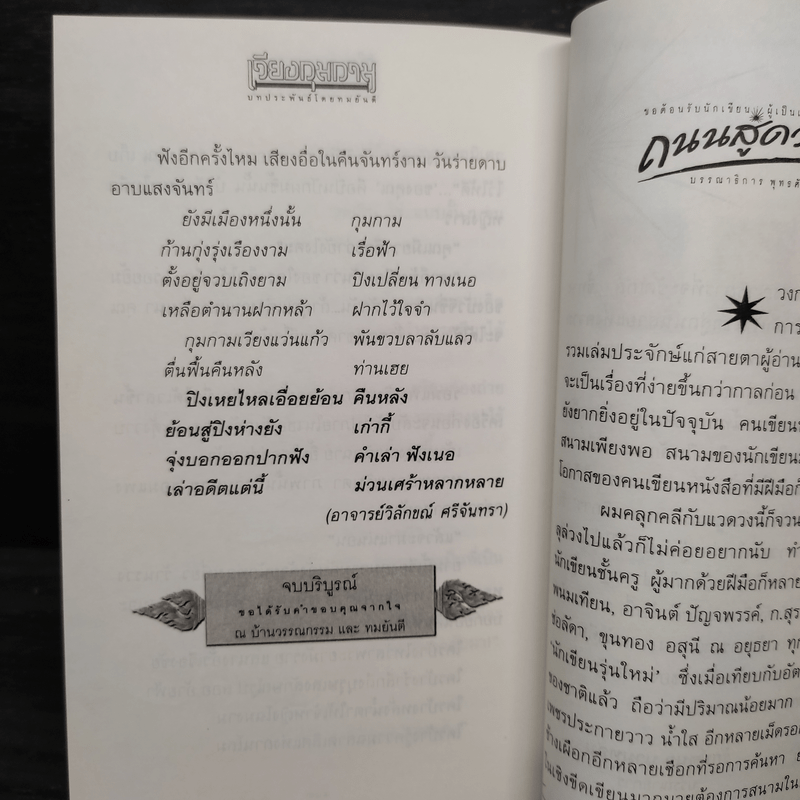 เวียงกุมกาม
บทประพันธ์โดยทมยันตี
ฟังอีกครั้งไหม เสียงอื่อในคืนจันทร์งาม วันร่ายดาบ
อาบแสงจันทร์
ยังมีเมืองหนึ่งนั้น กุมกาม
ก้านกุ่งรุ่งเรืองงาม เรื่อฟ้า
ตั้งอยู่จวบเถิงยาม ปิงเปลี่ยน ทางเนอ
เหลือตำนานฝากหล้า ฝากไว้ใจจำ
กุมกามเวียงแว่นแก้ว พันขวบลาลับแลว
ตื่นฟื้นคืนหลัง ท่านเฮย
ปิงเหยไหลเอื่อยย้อน คืนหลัง
ย้อนสู่ปิงห่างยัง เก่ากี้
จุ่งบอกออกปากฟัง คำเล่า ฟังเนอ
เล่าอดีตแต่นี้ ม่วนเศร้าหลากหลาย
(อาจารย์วิลักขณ์ ศรีจันทรา)
จบบริบูรณ์
ขอได้รับคำขอบคุณจากใจ
ณ บ้านวรรณกรรม และ ทมยันตี
ขอต้อนรับนักเขียน ผู้เป็น
ถนนสู่ดาว
บรรณาธิการ พุทธ
วงก
การ
รวมเล่มประจักษ์แก่สายตาผู้อ่าน
จะเป็นเรื่องที่ง่ายขึ้นกว่ากาลก่อน
ยังยากยิ่งอยู่ในปัจจุบัน คนเขียน
สนามเพียงพอ สนามของนักเขียน
โอกาสของคนเขียนหนังสือที่มีฝีมือก็
ผมคลุกคลีกับแวดวงนี้ก็จวน
ลุล่วงไปแล้วก็ไม่ค่อยอยากนับ ทำ
นักเขียนชั้นครู ผู้มากด้วยฝีมือก็หลาย
พนมเทียน, อาจินต์ ปัญจพรรค์, ก.สุร
ช่อลัดา, ขุนทอง อสุนี ณ อยุธยา ทุก
'นักเขียนรุ่นใหม่' ซึ่งเมื่อเทียบกับอัต
ของชาติแล้ว ถือว่ามีปริมาณน้อยมาก
เพชรประกายวาว น้ำใส อีกหลายเม็ดรอ
ช้างเผือกอีกหลายเชือกที่รอการค้นหา
ในเชิงขีดเขียนมากมายต้องการสนามใน